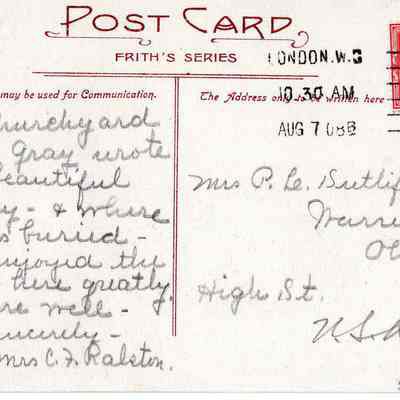 POST CARD
FRITH'S SERIES
LONDON.W.C
10.30 AM
AUG 7 08B
may be used for Communication.
The Address only to be written here
churchyard
Gray wrote
beautiful
y - & where
s buried -
enjoyed the
here greatly.
re well -
sincerely -
Mrs C. F. Ralston.
Mrs P. L. Sutlif
Warre
O
High St.
U.S.A